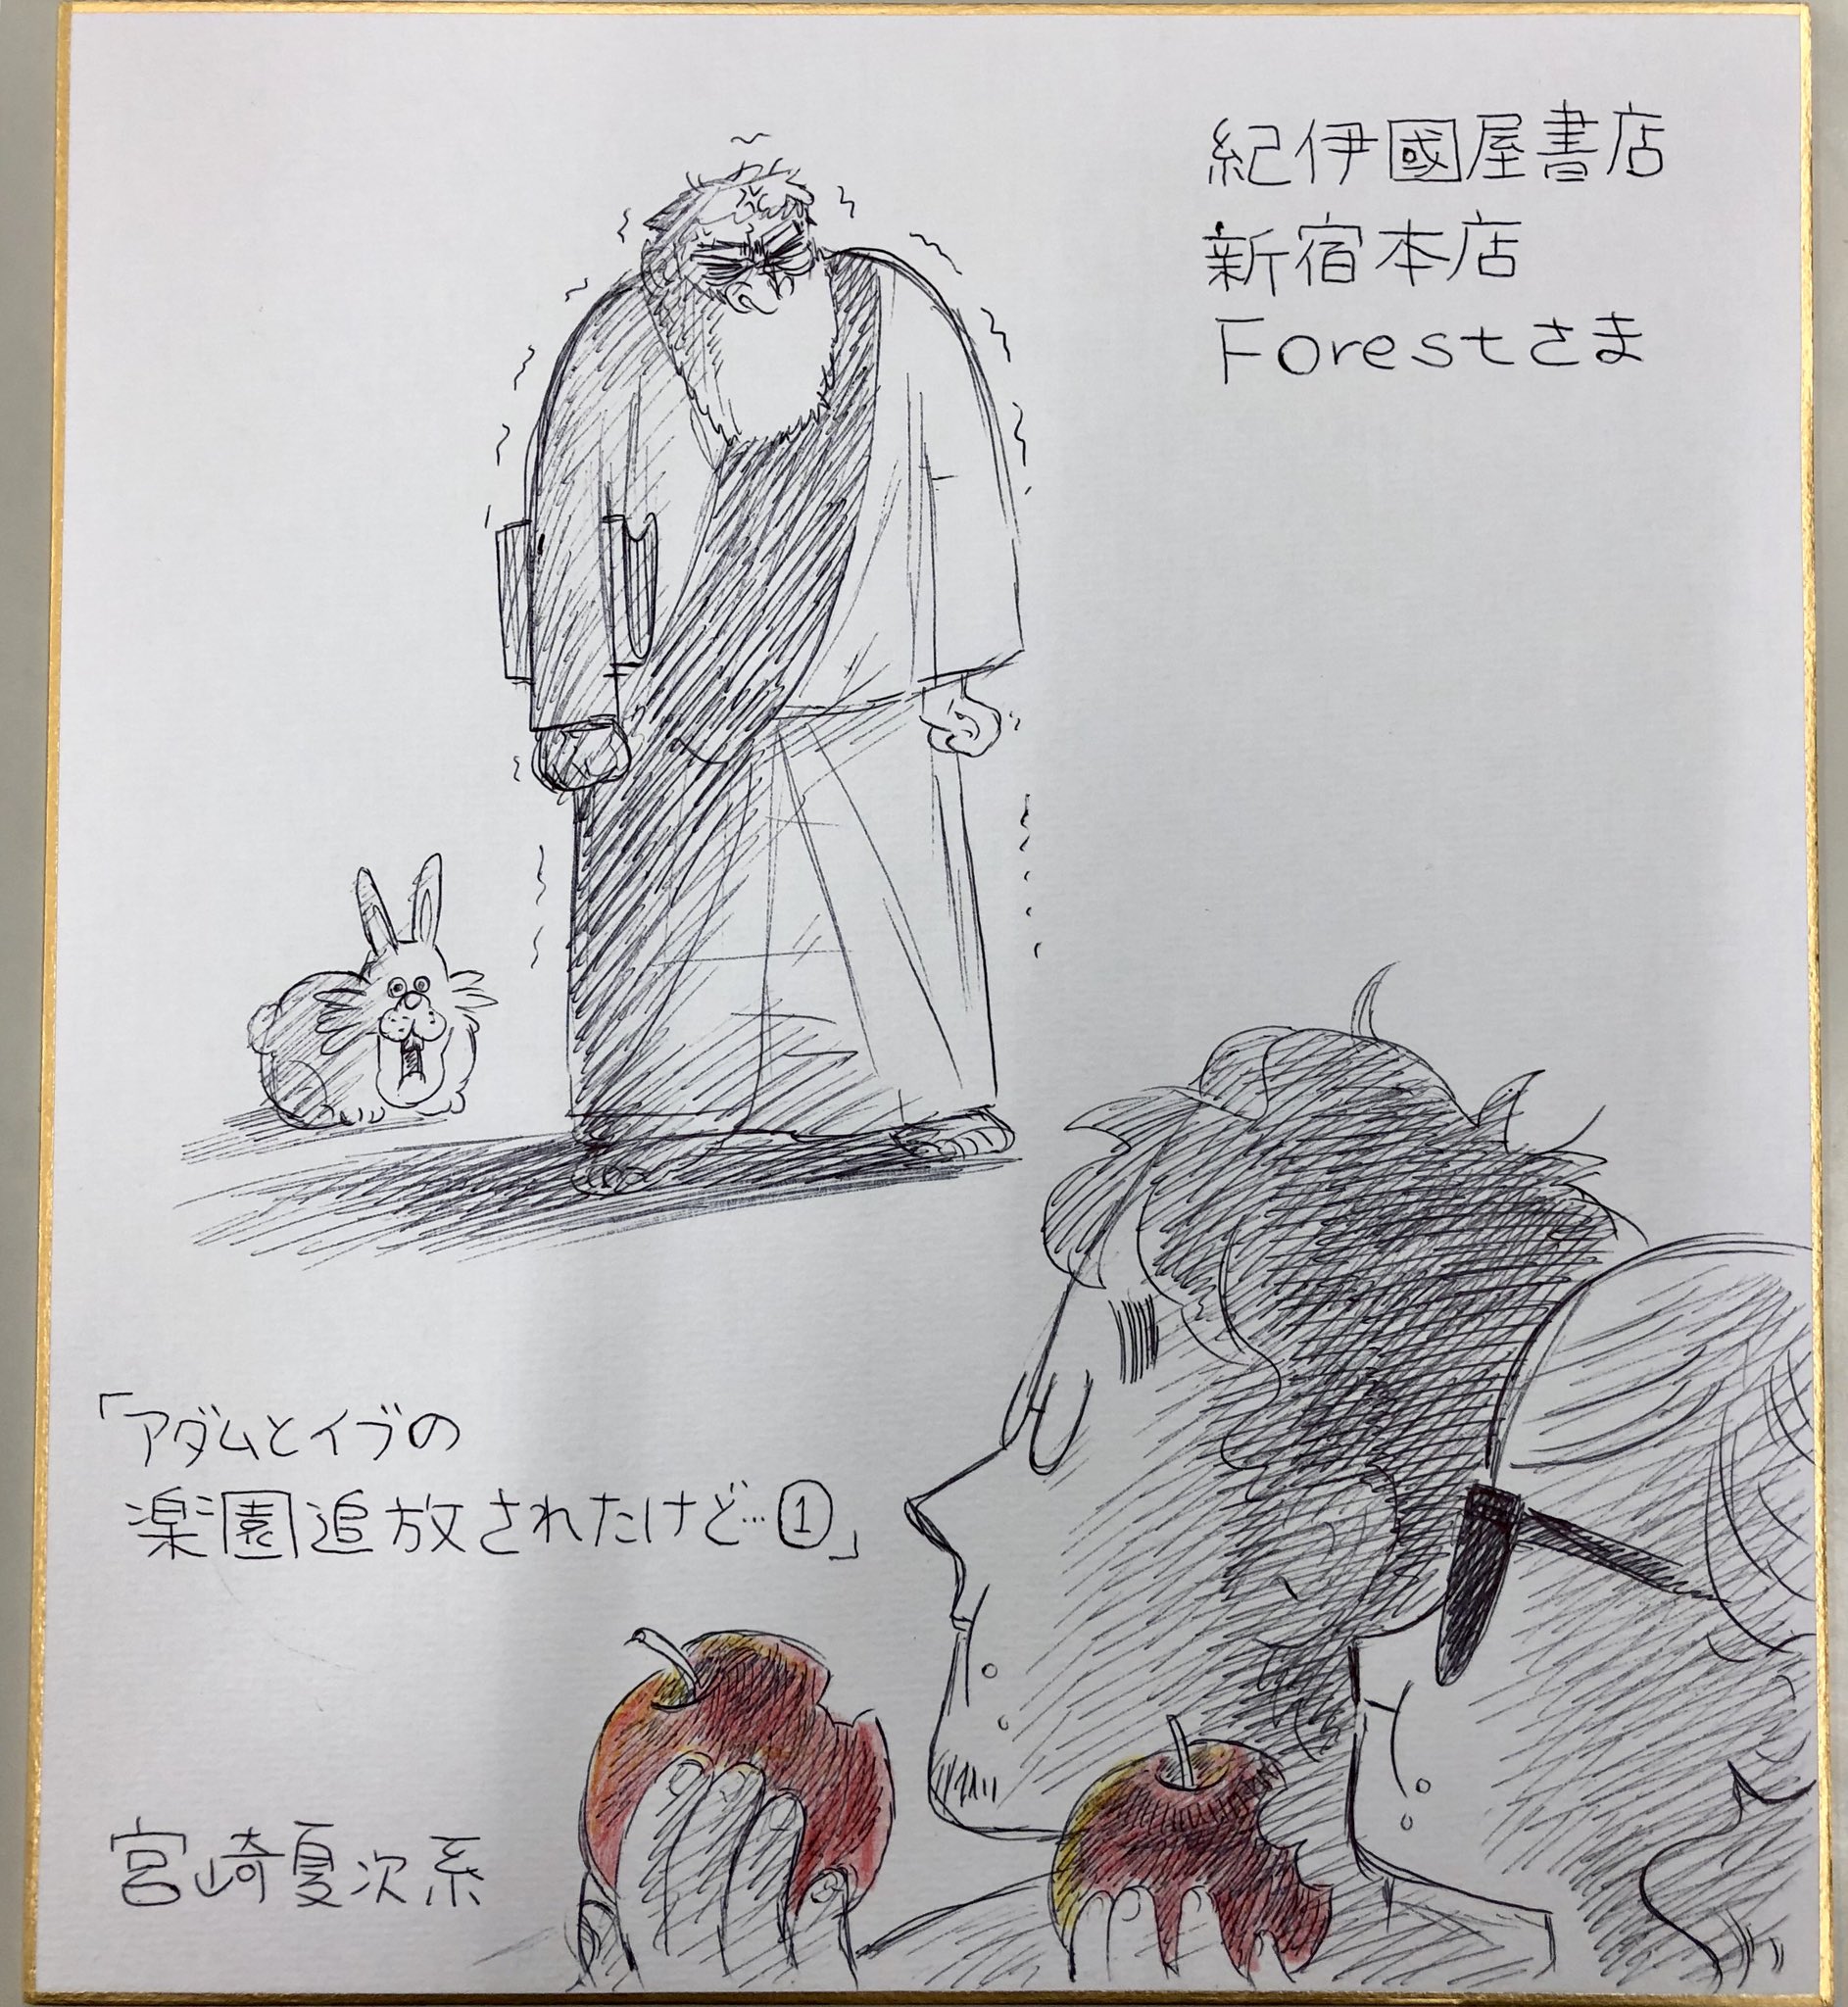 紀伊國屋書店
新宿本店
Forestさま
「アダムとイブの
楽園追放されたけど…①」
宮崎夏次系